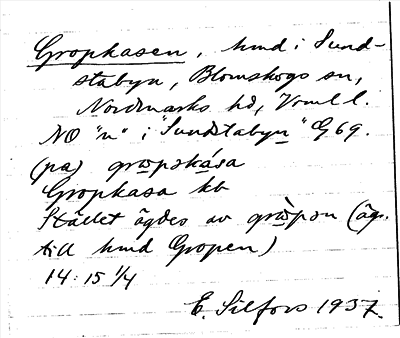 Gropkasen, hmd i Sund-
stabyn, Blomskogs sn,
Nordmarks hd, Vrml l.
NO "n" i "Sundstabyn" G 69.
(pa) gropskása
Gropkasa kb
Stället ägdes av gròpən (äg.
till hmd Gropen)
14:15 1/4
E. Silfors 1937.